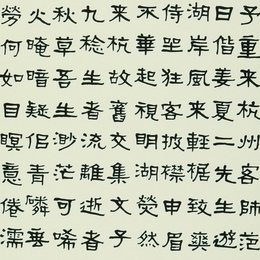 予重来杭州客師范
日偕姜夏二先生遊
湖岸風来輕裾致爽
侍坐狂客披襟申眉
不華起視明湖熒然
来杭故舊交集文子
九稔生者流離逝者
秋草吾生渺茫可唏
火暗暗疑佀青磷垂
勞何如目瞑意倦濡